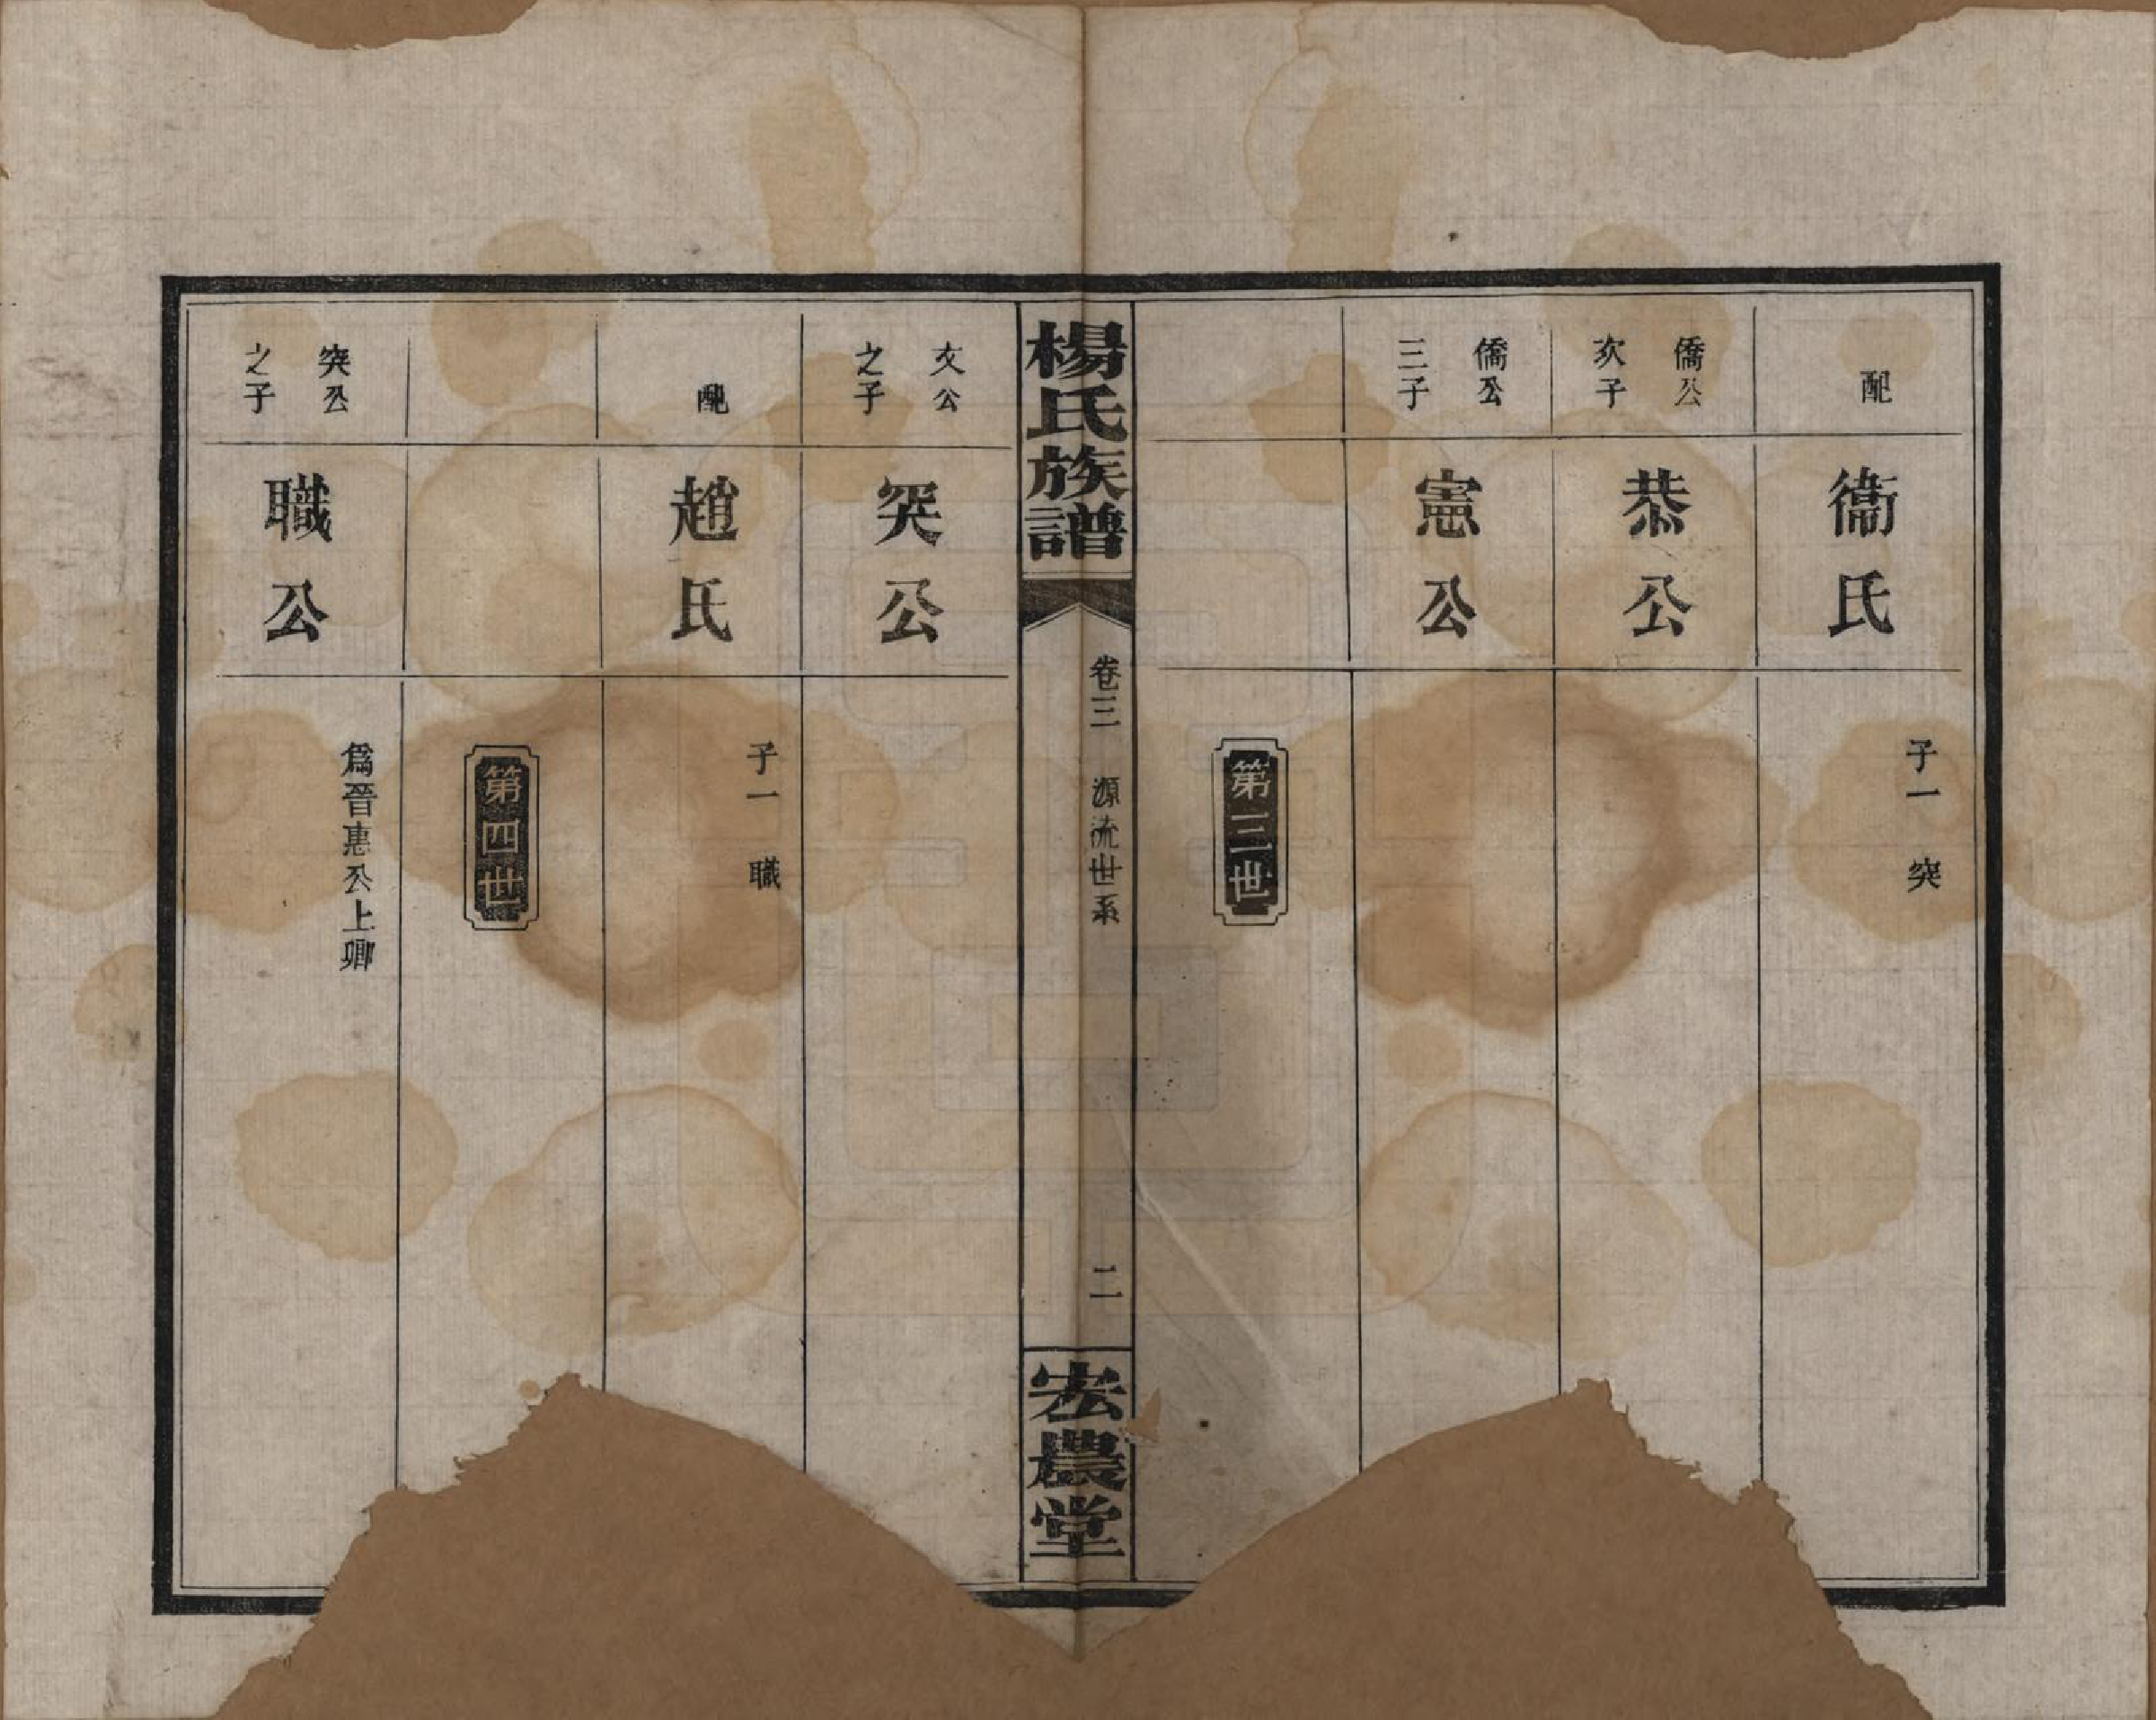 配
衞氏
子一 突
僑公
次子
恭公
僑公
三子
憲公
第三世
楊氏族譜
卷三 源流世系
二
宏農堂
文公
之子
突公
配
趙氏
子一 職
第四世
突公
之子
職公
爲晉惠公上卿